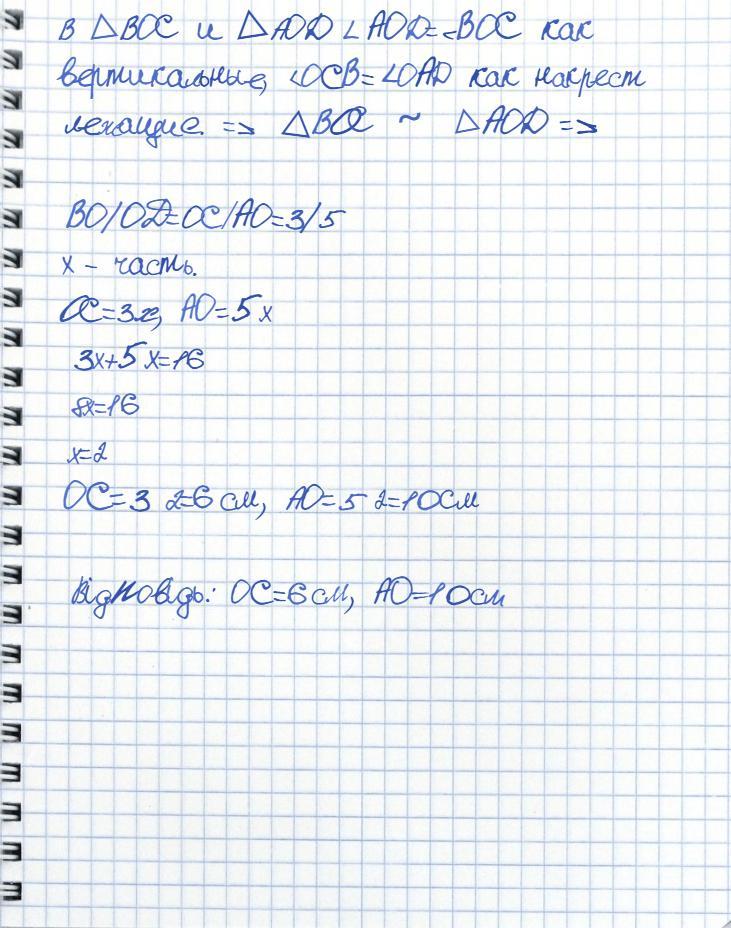 в △BOC и △AOD ∠AOD=∠BOC как
вертикальные, ∠OCB=∠OAD как накрест
лежащие. => △BOC ~ △AOD =>
BO/OD=OC/AO=3/5
x - часть.
OC=3x, AO=5x
3x+5x=16
8x=16
x=2
OC=3 2=6 см, AO=5 2=10см
Відповідь: OC=6см, AO=10см